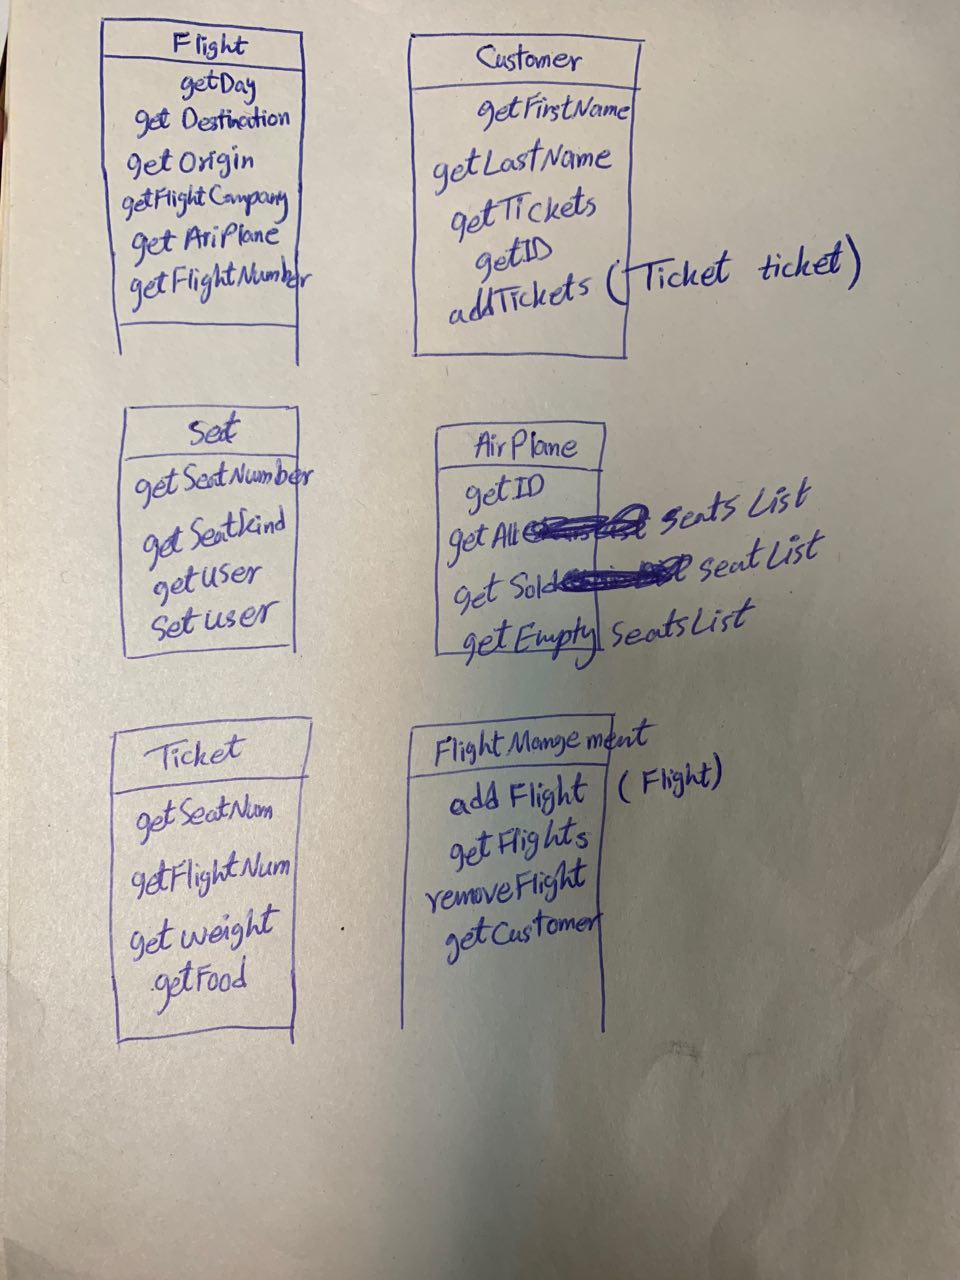 Flight
getDay
get Destination
get Origin
getFlightCompany
get AriPlane
getFlightNumber
Customer
getFirstName
getLastName
getTickets
getID
addTickets (Ticket ticket)
Seat
getSeatNumber
getSeatKind
getUser
Set user
AirPlane
getID
get All Seats List
get Sold SeatList
get Empty SeatsList
Ticket
getSeatNum
getFlightNum
get weight
getFood
FlightMangement
add Flight (Flight)
getFlights
removeFlight
getCustomer